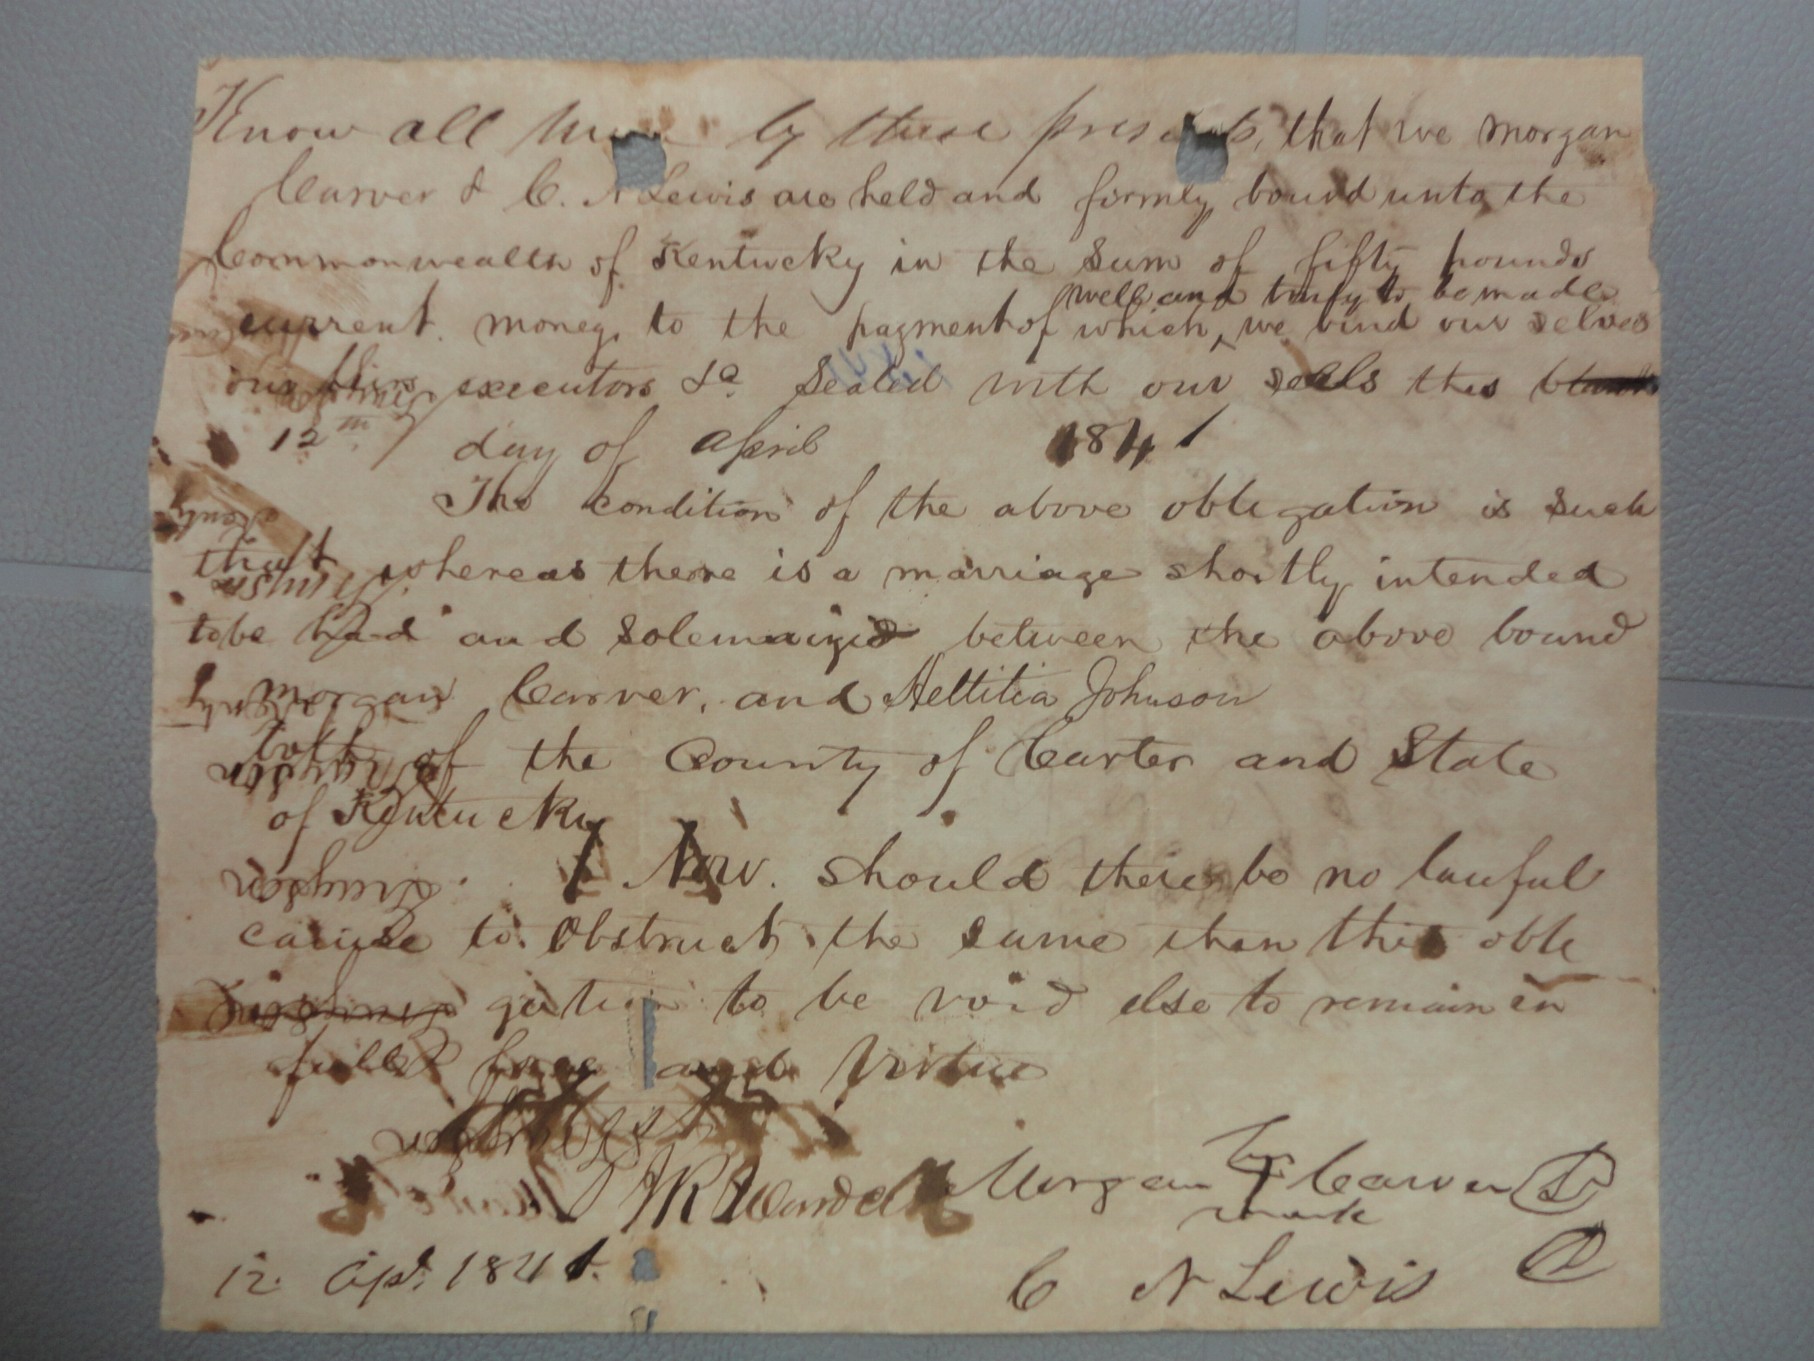 Know all Men by these presents, that we Morgan
Carver & C. N Lewis are held and firmly bound unto the
Commonwealth of Kentucky in the Sum of fifty pounds
well and truly to be made
current money, to the payment of which, we bind our selves
our executors &c Sealed with our seals this
12th day of April 1841
The condition of the above obligation is such
that whereas there is a marriage shortly intended
to be had and solemnized between the above bound
Morgan Carver, and Johnson
both of the County of Carter and State
of Kentucky
Now. should there be no lawful
cause to obstruct the same then this obli
gation to be void else to remain in
full force and Virtue
Morgan his Carver
mark
J R Ward
12. Apl. 1841.
C N Lewis